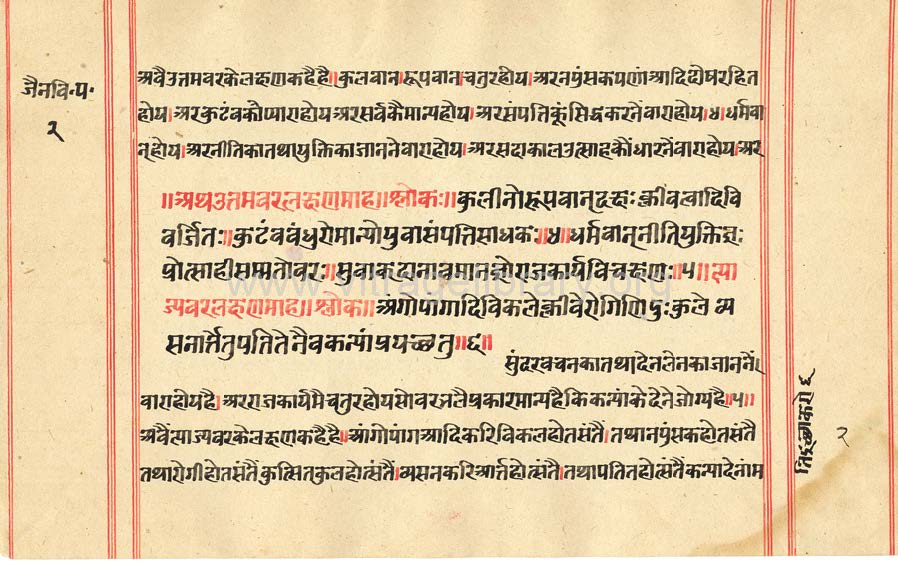 जैनवि॰प॰
२
अवैउत्तमवरकेलक्षणकहैहै॥कुलवान।रूपवान।चतुरहोय।अरनपुंसकपणां आदिदोषरहित
होय।अरकुटंबकौप्याराहोयअरसर्वकैमान्यहोय।अरसंपतिकूंसिद्धकरनेंवाराहोय।४।धर्मवा
न्होय।अरनीतिकातथायुक्तिकाजाननेवाराहोय।अरसदाकालउत्साहकौंधारनेंवाराहोय।अर
॥अथउत्तमवरलक्षणमाह॥श्लोकः॥कुलीनोरूपवान्दक्षःक्लीवत्वादिवि
वर्जितः॥कुटंबबंधुरोमान्योयुवासंपत्तिसाधकः॥४॥धर्मवान्नीतियुक्तिज्ञः
प्रोत्साहीसम्मतोवरः॥सुवाकदानावमानज्ञोराजकार्यविचक्षणः॥५॥त्या
ज्यवरलक्षणमाह॥श्लोक॥अंगोपांगादिविकलेक्लीवेरोगिणिदुःकुले व्य
सनार्त्तेतुपतितेनैवकन्यांप्रयच्छतु॥६॥
सुंदरवचनकातथादेनलेनकाजाननें।
वाराहोयहै।अरराजकार्यमैचतुरहोयसोवरभलैप्रकारमान्यहैकिकन्यांकेदेनेजोग्यहै॥५॥
अवैंत्याज्यवरकेलक्षणकहैहै॥आंगोपांगआदिकरिविकलहोतसंतैं।तथानपुंसकहोतसंतै
तथारोगीहोतसंतैंकुत्सितकुलहोत्संतैं।व्यसनकरिआर्त्तहोत्संतै।तथापतितहोत्संतैंकन्यादेनांम
२